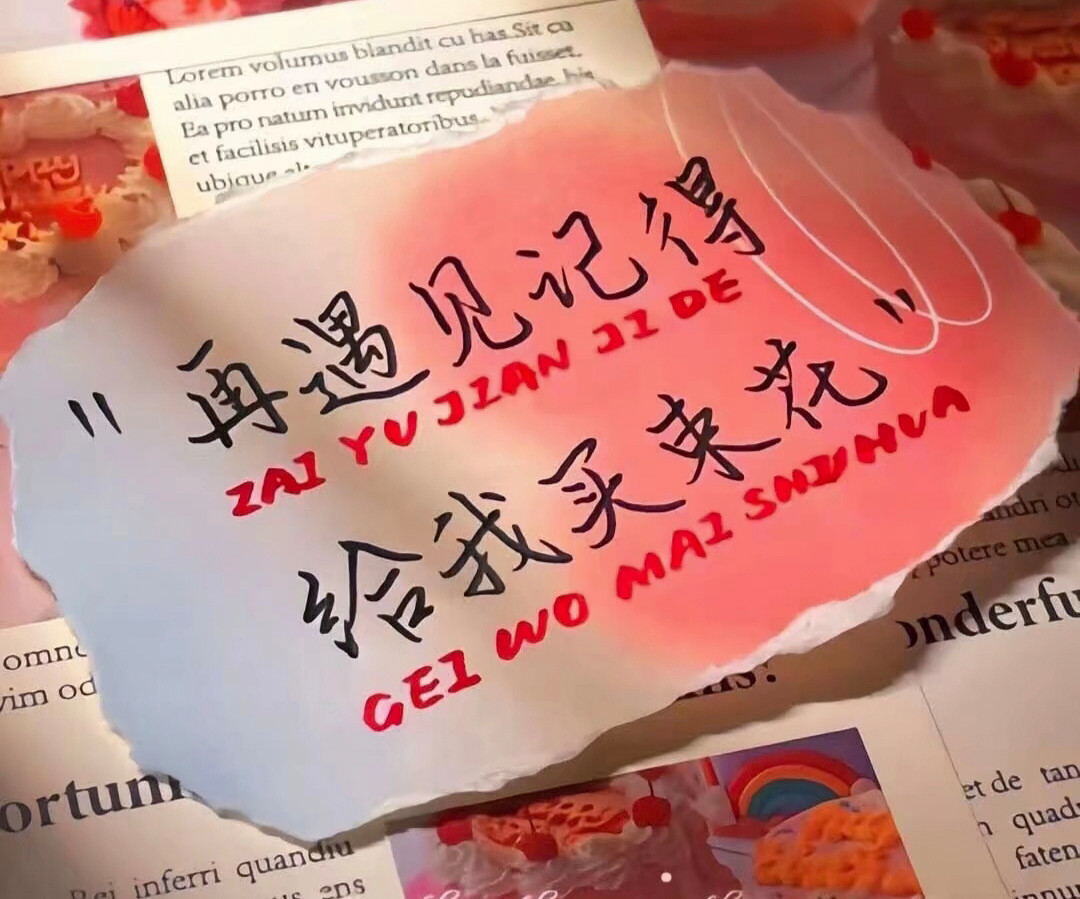 Lorem volumus blandit cu has.Sit cu
alia porro en vousson dans la fuisset.
Ea pro natum invidunt repudiandae his
et facilisis vituperatoribus.
ubique
"再遇见记得
ZAI YU JIAN JI DE
给我买束花"
GEI WO MAI SHU HUA
potere mea
omne
vim od
onderfu
ortuni
et de tan
quad
faten
Rei inferri quandiu
ens